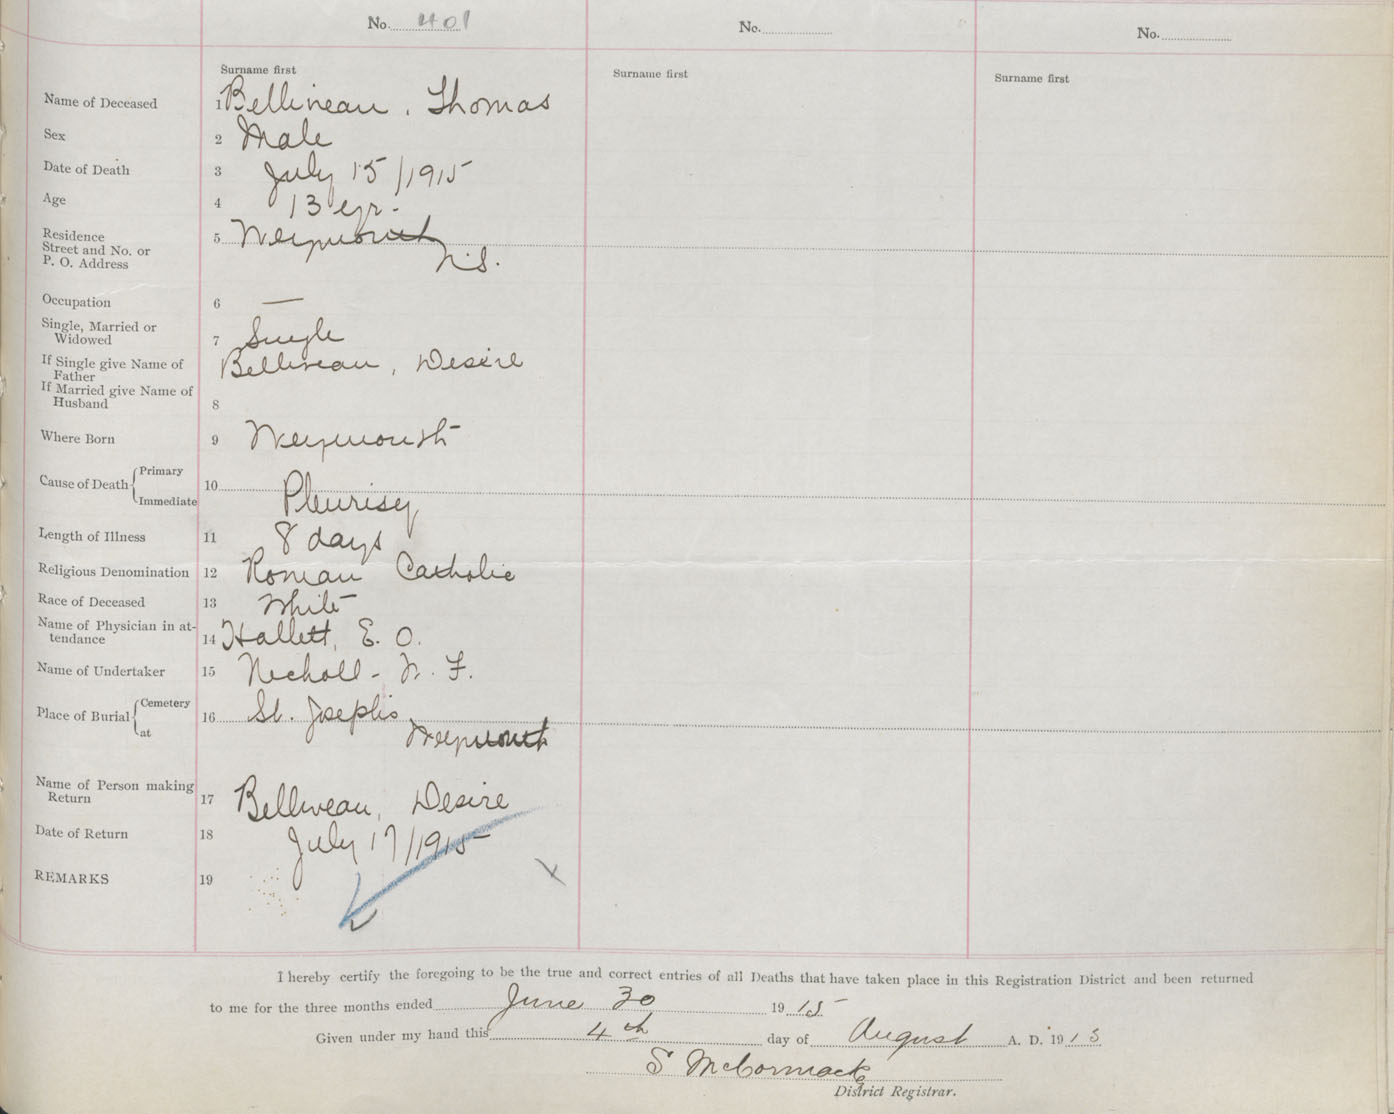 No. 401 No. No.
Surname first Surname first Surname first
Name of Deceased 1 Belliveau, Thomas
Sex 2 Male
Date of Death 3 July 15/1915
Age 4 13 yr.
Residence 5 Weymouth
Street and No. or
P. O. Address N.S.
Occupation 6 —
Single, Married or
Widowed 7 Single
If Single give Name of
Father Belliveau, Desire
If Married give Name of
Husband 8
Where Born 9 Weymouth
Cause of Death { Primary
10
Immediate Pleurisy
Length of Illness 11 8 days
Religious Denomination 12 Roman Catholic
Race of Deceased 13 White
Name of Physician in at-
tendance 14 Hallett, E. O.
Name of Undertaker 15 Nicholl - F.
Place of Burial { Cemetery
16 St. Josephs
at Weymouth
Name of Person making
Return 17 Belliveau, Desire
Date of Return 18 July 17/1915
REMARKS 19
I hereby certify the foregoing to be the true and correct entries of all Deaths that have taken place in this Registration District and been returned
to me for the three months ended June 30 1915
Given under my hand this 4th day of August A. D. 1915
S McCormack
District Registrar.